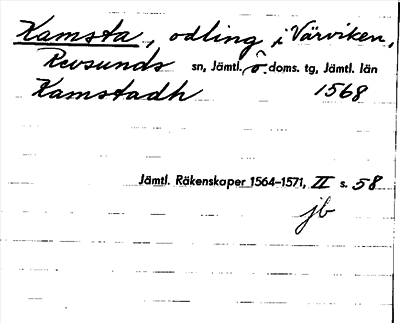 Kamsta, odling i Värviken,
Revsunds sn, Jämtl. ö. doms. tg, Jämtl. län
Kamstadh 1568
Jämtl. Räkenskaper 1564–1571, II s. 58
jb